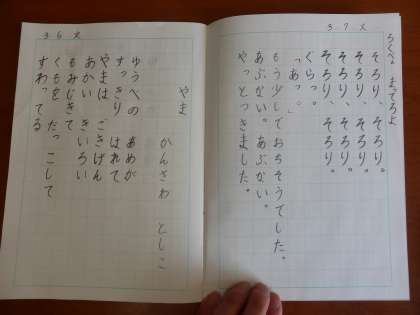 3.7 火
ろくべえ まってろよ
そろり、そろり。
そろり、そろり。
そろり、そろり。
そろり、そろり。
ぐらっ。
「あっ。」
もう少しでおちそうでした。
あぶない。あぶない。
やっとつきました。
3.6 火
やま
かんざわ としこ
ゆうべの あめが
すっきり はれて
やまは ごきげん
あかい きいろい
もみじきて
くもを だっこして
すわってる